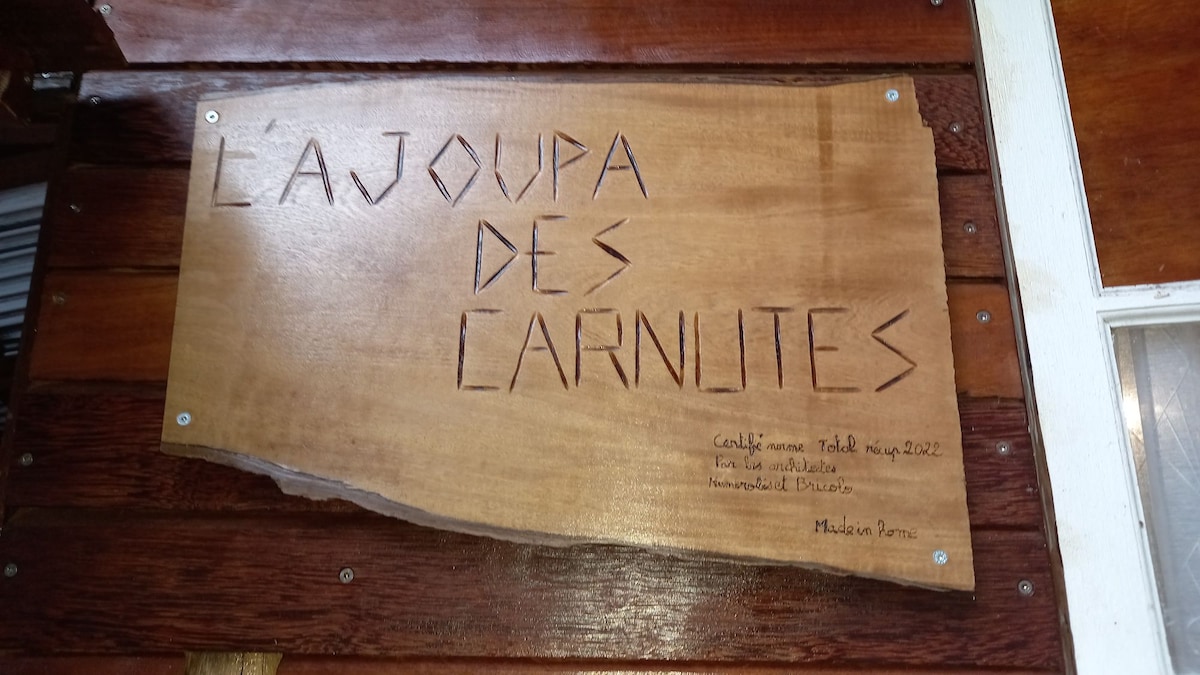 L'AJOUPA
DES
CARNUTES
Certifié norme Total récup 2022
Par les architectes
Numerobis et Bricolo
Made in home